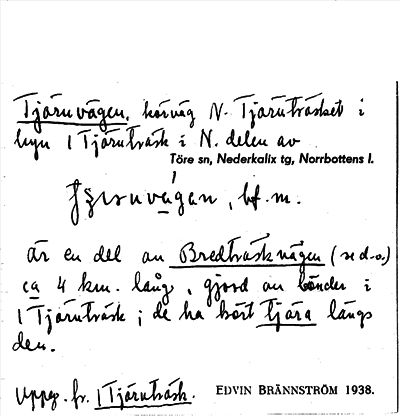 Tjäruvägen, körväg N. Tjäruträsket i
byn 1 Tjäruträsk i N. delen av
Töre sn, Nederkalix tg, Norrbottens l.
bf. m.
är en del av Bredträskvägen (se d.o.)
ca 4 km. lång, gjord av bönder i
1 Tjäruträsk; de ha kört tjära längs
den.
Uppg. fr. 1 Tjäruträsk. EDVIN BRÄNNSTRÖM 1938.